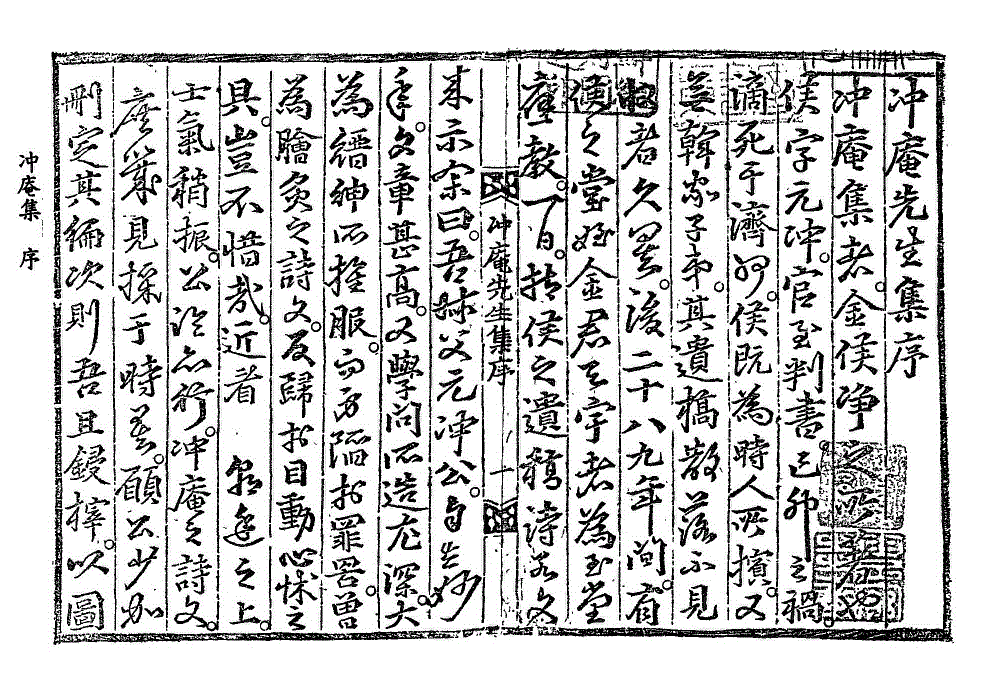 冲庵先生集序
冲庵集者。金侯淨之所著也。
侯字元冲。官至判書。己卯之禍。
謫死于濟州。侯既為時人所擯。又
無韓家子弟。其遺稿散落不見
者久矣。後二十八九年間。有
侯之堂姪金君天宇者為玉堂
應教。一日。持侯之遺稿詩若文
来示余曰。吾叔父元冲公。自少
文章甚高。又學問所造尤深。大
為縉紳所推服。而乃陷於罪罟。曾
為膾炙之詩文。反歸於目動心怵之
具。豈不惜哉。近者 朝廷之上。
士氣稍振。公論亦行。冲庵之詩文。
庶幾見採于時矣。願公少加
刪定其編次則吾且鋟梓。以圖
冲庵先生集序 一
冲庵集 序